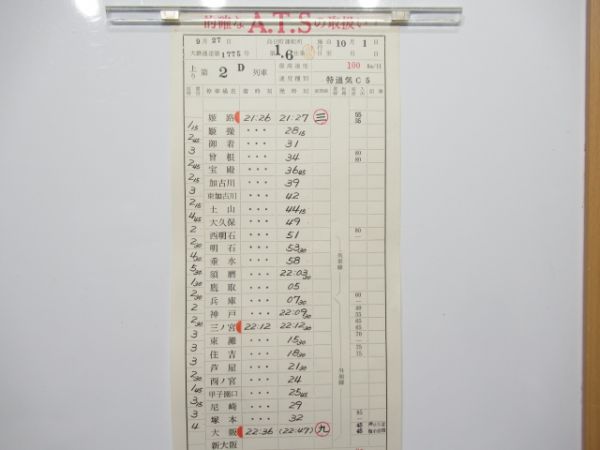 的確な A.T.S の取扱い
9月27日
大鉄運達第1775号
施行 10月1日
1.6
上り 第 2 D 列車
最高速度 100 km/h
速度種別 特通気C5
停車場名 着時刻 発時刻
姫路 21:26 21:27 三 55 35
1 15 姫操 ・・・ 28 15
2 45 御着 ・・・ 31
3 曽根 ・・・ 34 80 80
2 45 宝殿 ・・・ 36 45
2 15 加古川 ・・・ 39
3 東加古川 ・・・ 42
2 15 土山 ・・・ 44 15
4 45 大久保 ・・・ 49
2 西明石 ・・・ 51 80
2 30 明石 ・・・ 53 30
4 30 垂水 ・・・ 58
5 30 須磨 ・・・ 22:03 30
1 30 鷹取 ・・・ 05
2 30 兵庫 ・・・ 07 30 60
2 神戸 ・・・ 22:09 30
3 三ノ宮 22:12 22:12 30
3 東灘 ・・・ 15 30
3 住吉 ・・・ 18 30
2 30 芦屋 ・・・ 21 30
2 30 西ノ宮 ・・・ 24
1 45 甲子園口 ・・・ 25 45
3 15 尼崎 ・・・ 29
3 塚本 ・・・ 32 85
4 大阪 22:36 (22:47) 九 45 45
新大阪
列車線
外側線